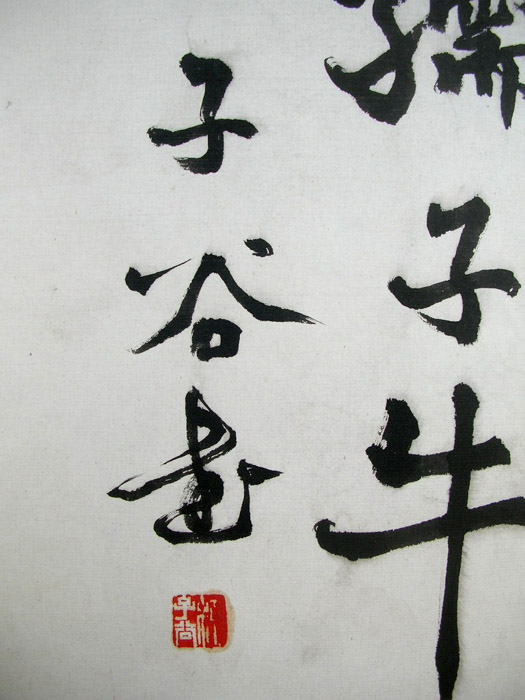 孺子牛
子谷畫